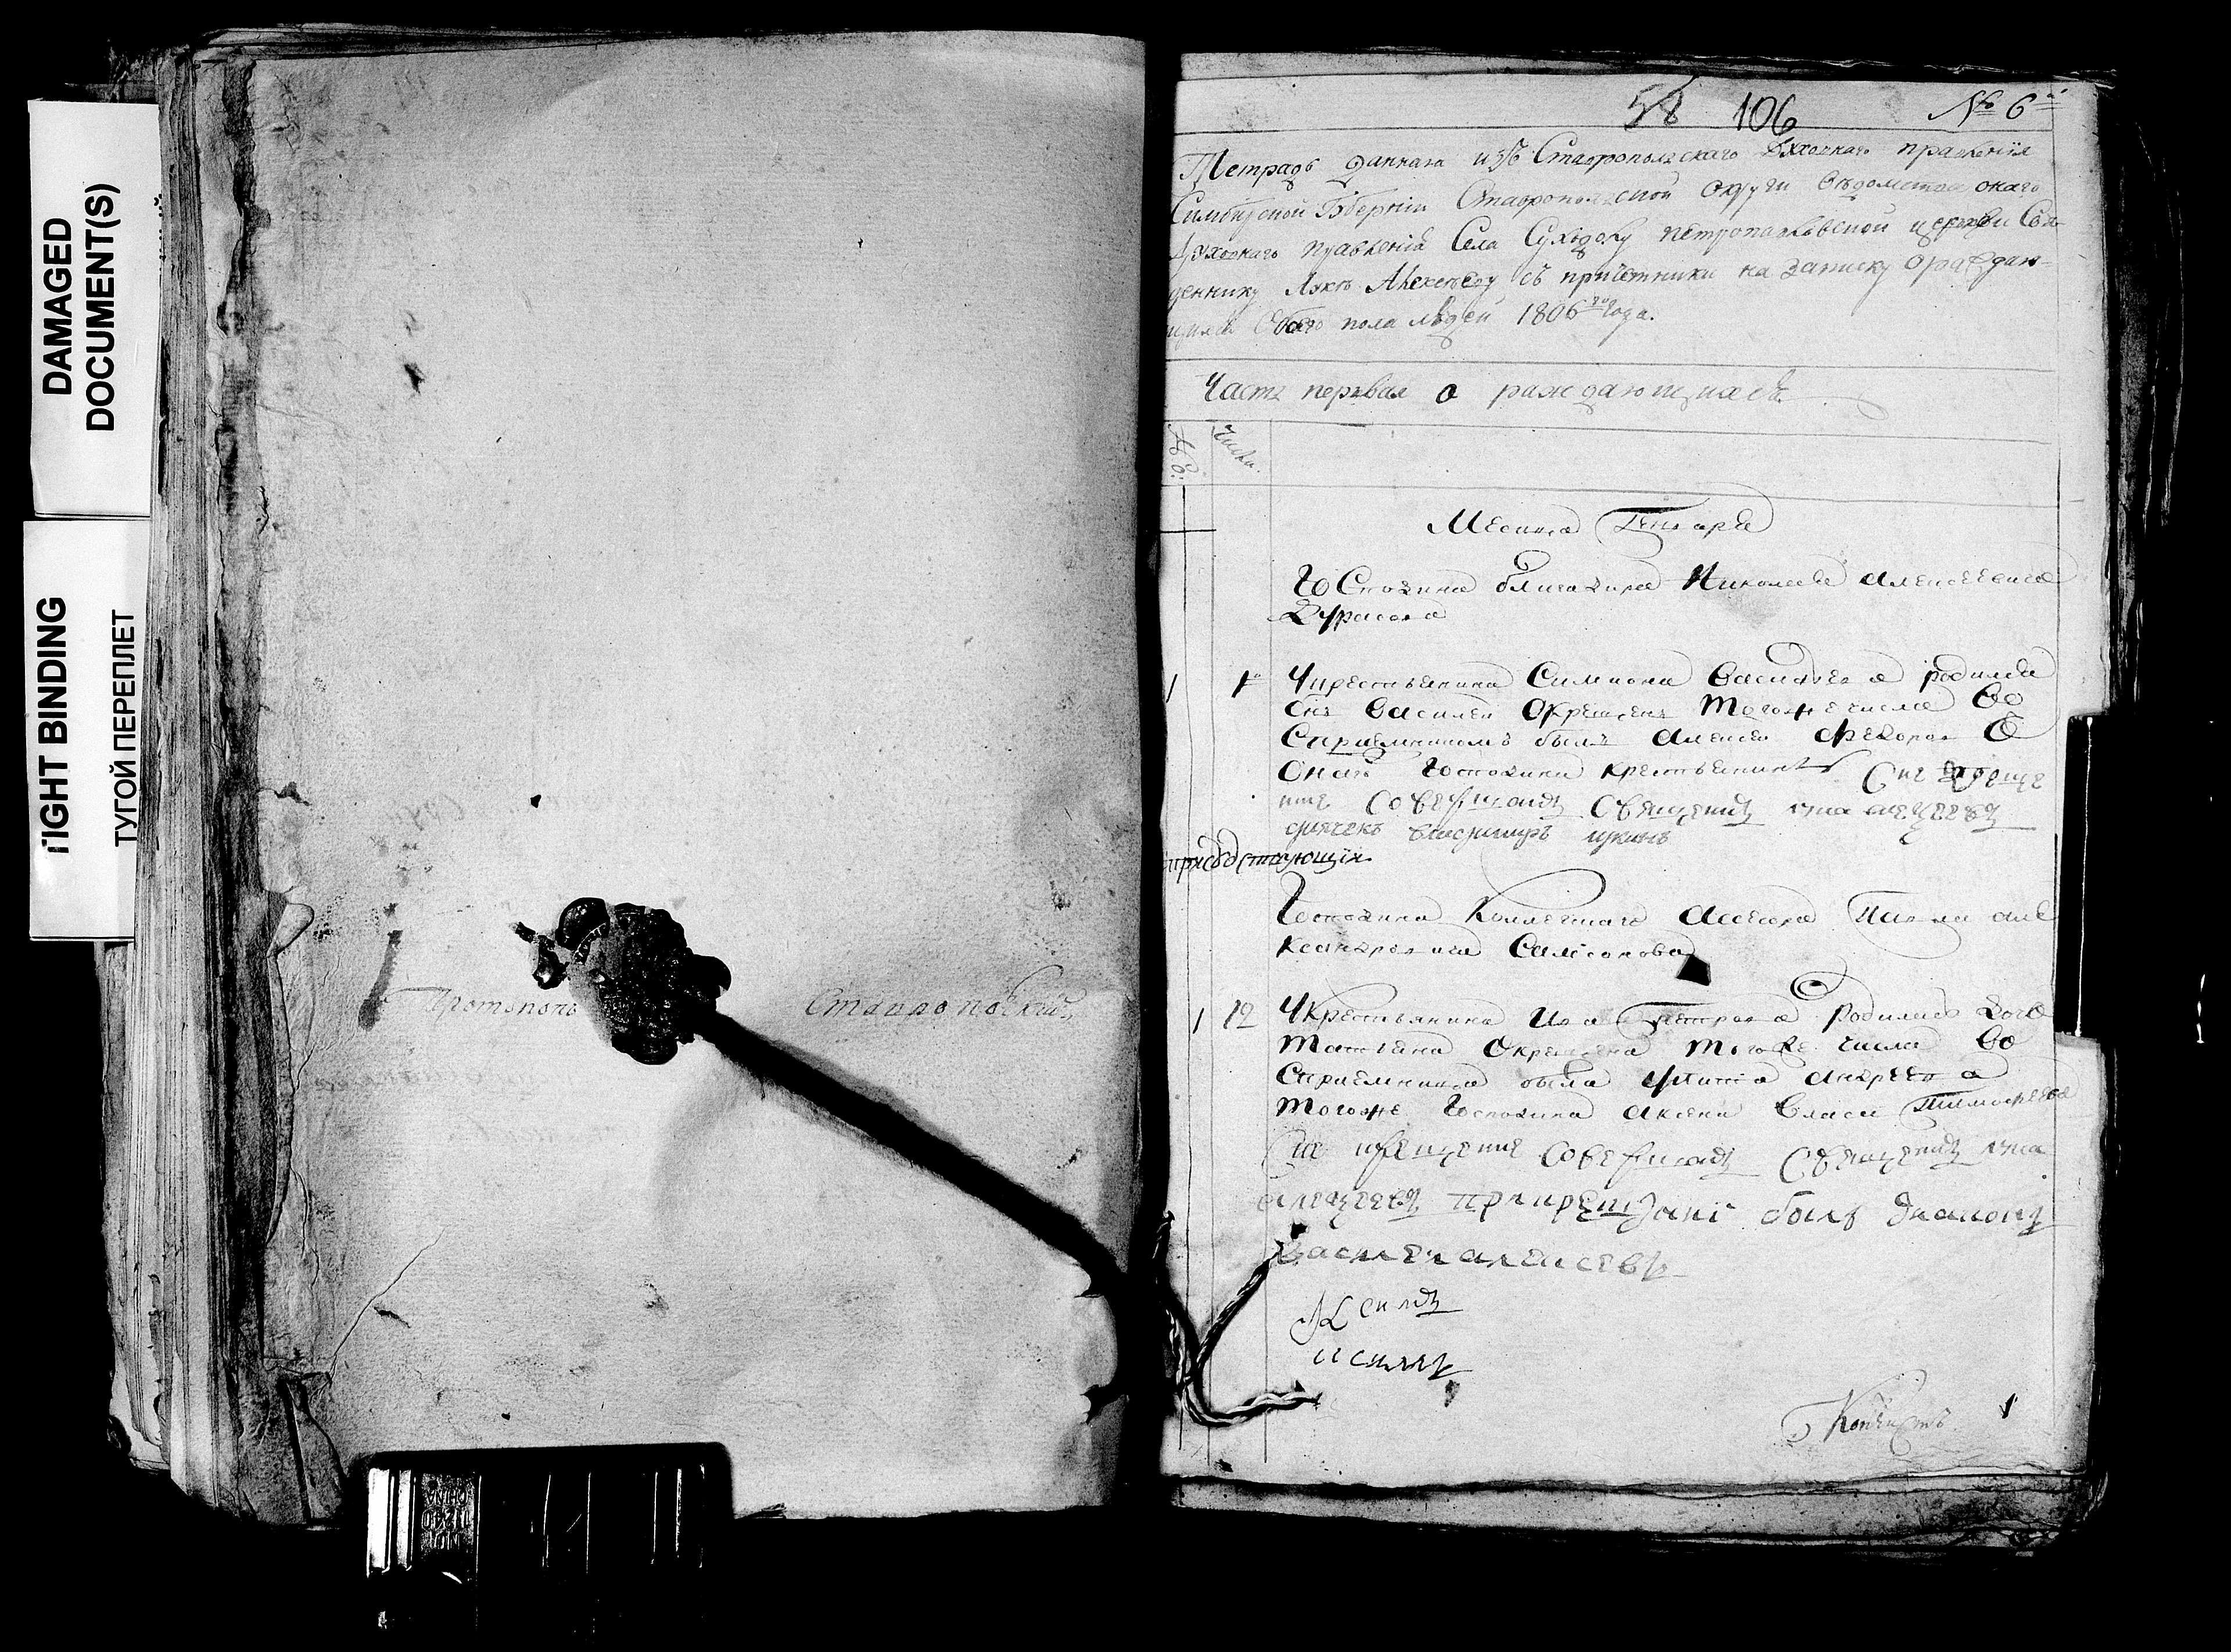 DAMAGED
DOCUMENT(S)
TIGHT BINDING
ТУГОЙ ПЕРЕПЛЕТ
Протопопъ Ставропольский
58 106 № 6й
Тетрадь даннаѧ изъ Ставропольскаго духовнаго правленія
Симбирской Губерніи Ставропольской округи ведомства онаго
духовнаго правленія Села Суходолу петропавловской церкви Свя-
щеннику Луке Алексееву съ причетники на записку о раждаю-
щихся обоего пола людей 1806го года.
Часть первая о раждающихся
№ Числа
Месяца Генваря
Господина Николаева алексеевича
Дурасова
1 1 Укрестьянина Симиона Васильева родился
снъ Василеи Окрещенъ Тогоже числа Во
Сприемникомъ былъ алексеи Федоров
Онаго Господина крестьянинъ Сие креще
ние Совершилъ Священикъ лука алексеевъ
дьячекъ владимиръ
присудствующіи
Господина Коллежнаго асесора Павла але
ксандровича Самсонова
1 12 Укрестьянина Ива Петрова Родилась дочь
Татьяна Окрещена Тогоже числа Во
Сприемница была андреева
Тогоже Господина Власа Тимофеева
Сие крещение Совершилъ Священикъ лука
алексеевъ при крещани былъ диаконъ
василеи алексеевъ
Копеистъ